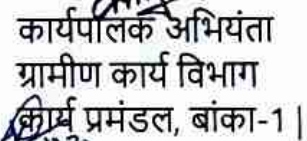 कार्यपालक अभियंता
ग्रामीण कार्य विभाग
कार्य प्रमंडल, बांका-1 |